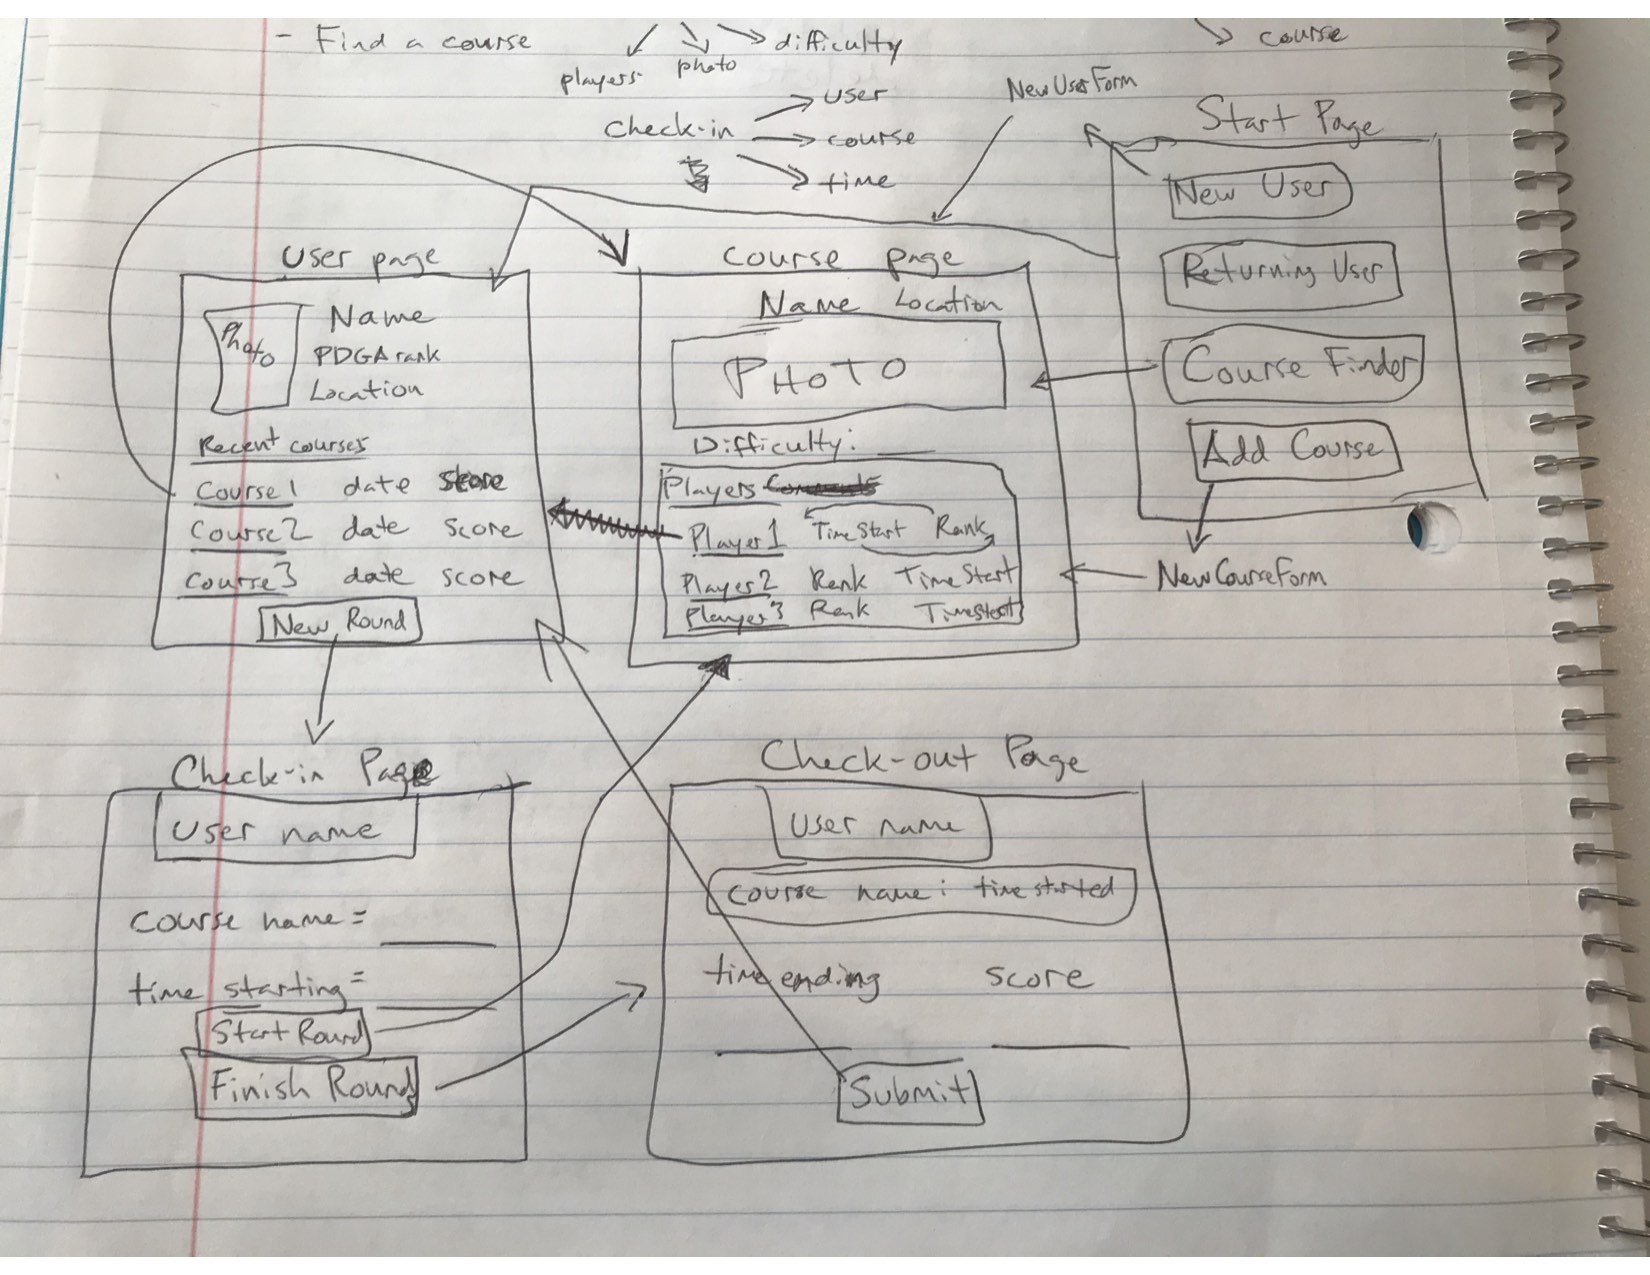 - Find a course
players
photo
difficulty
course
Check-in
user
course
time
NewUserForm
Start Page
New User
Returning User
Course Finder
Add Course
NewCourseForm
User page
Photo
Name
PDGA rank
Location
Recent courses
Course1 date score
Course2 date score
Course3 date score
New Round
Course page
Name Location
PHOTO
Difficulty:
Players
Player1 TimeStart Rank
Player2 Rank TimeStart
Player3 Rank TimeStart
Check-in Page
User name
course name =
time starting =
Start Round
Finish Round
Check-out Page
User name
course name: time started
time ending score
Submit